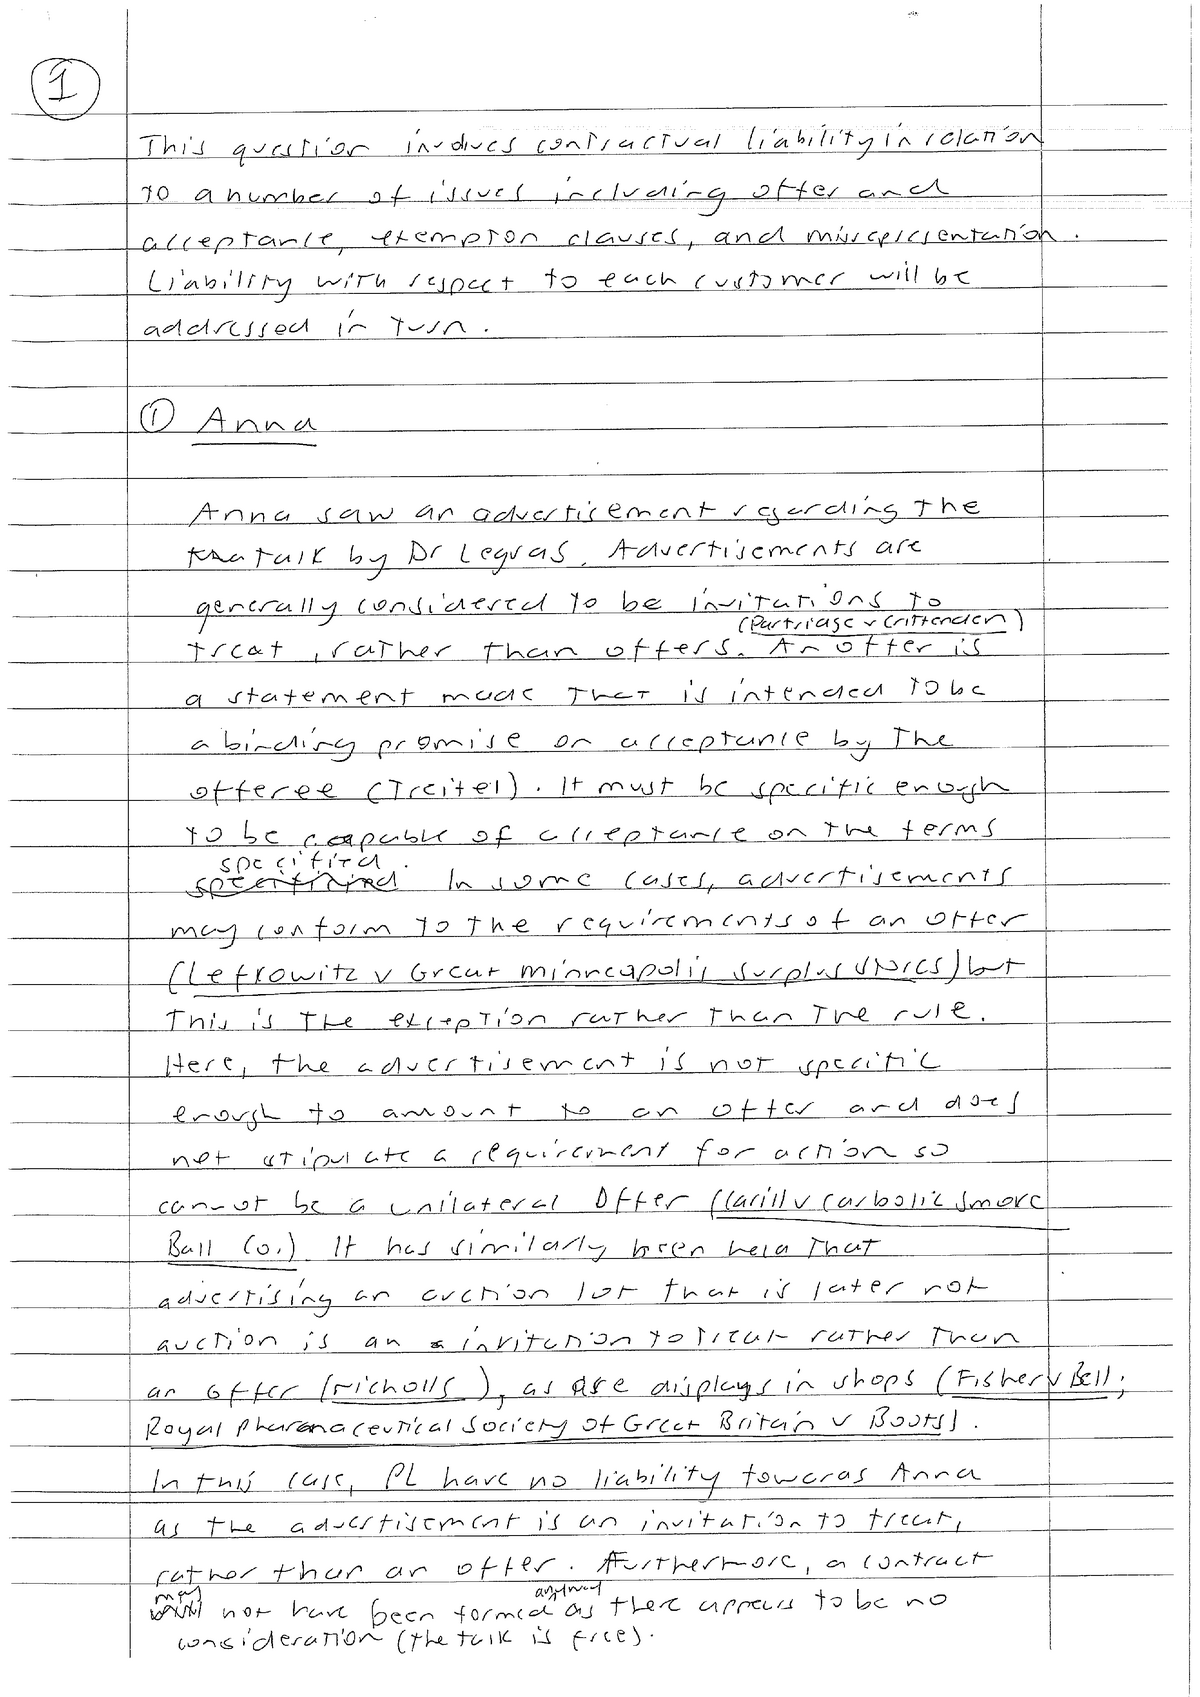 1
This question involves contractual liability in relation
to a number of issues including offer and
acceptance, exemption clauses, and misrepresentation.
Liability with respect to each customer will be
addressed in turn.
① Anna
Anna saw an advertisement regarding the
talk by Dr Legras. Advertisements are
generally considered to be invitations to
(Partridge v Crittenden)
treat, rather than offers. An offer is
a statement made that is intended to be
a binding promise on acceptance by the
offeree (Treitel). It must be specific enough
to be capable of acceptance on the terms
specified.
In some cases, advertisements
may conform to the requirements of an offer
(Lefkowitz v Great Minneapolis Surplus Stores) but
this is the exception rather than the rule.
Here, the advertisement is not specific
enough to amount to an offer and does
not stipulate a requirement for action so
cannot be a unilateral offer (Carlill v Carbolic Smoke
Ball Co.). It has similarly been held that
advertising an auction lot that is later not
auction is an invitation to treat rather than
an offer (Nicholls), as are displays in shops (Fisher v Bell;
Royal Pharmaceutical Society of Great Britain v Boots).
In this case, PL have no liability towards Anna
as the advertisement is an invitation to treat,
rather than an offer. Furthermore, a contract
may anyway
not have been formed as there appears to be no
consideration (the talk is free).